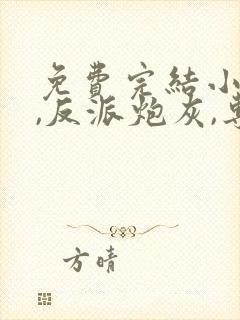 免費完結小
,反派炮灰,
方晴